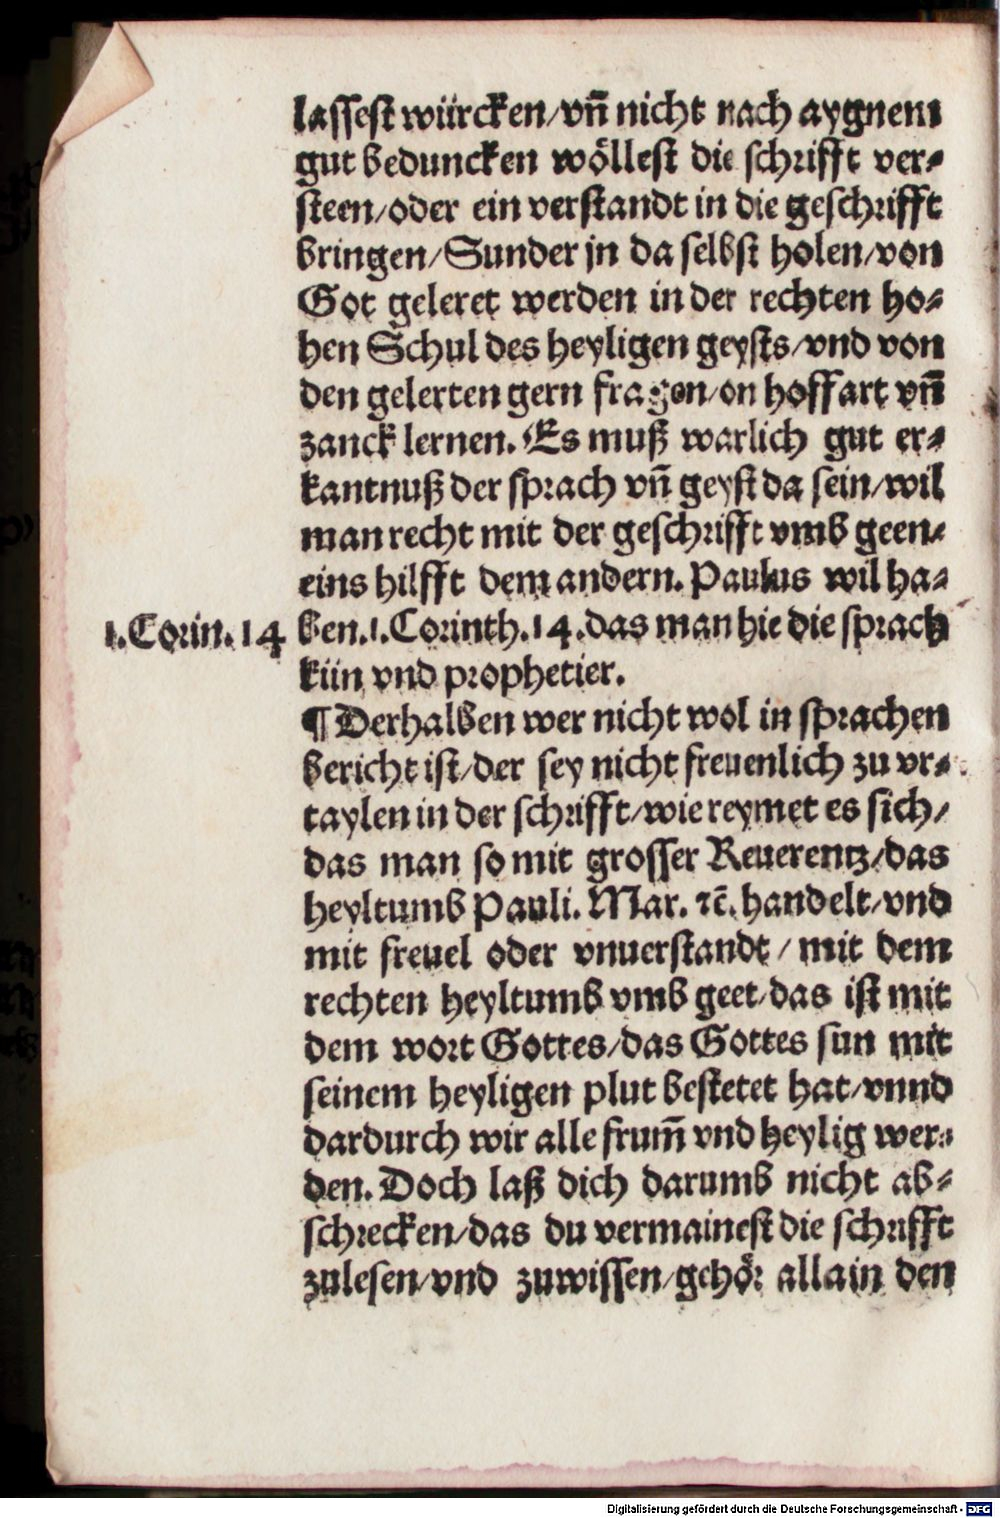 lassest würcken/vñ nicht nach aygnem
gut beduncken wöllest die schrifft ver-
steen/oder ein verstandt in die geschrifft
bringen/Sunder jn da selbst holen/von
Got geleret werden in der rechten ho-
hen Schul des heyligen geysts/vnd von
den gelerten gern fragen/on hoffart vñ
zanck lernen. Es muß warlich gut er-
kantnuß der sprach vñ geyst da sein/wil
man recht mit der geschrifft vmb geen/
eins hilfft dem andern. Paulus wil ha-
1.Corin.14 ben.1.Corinth.14.das man hie die sprach
kün vnd prophetier.
¶ Derhalben wer nicht wol in sprachen
bericht ist/der sey nicht freuenlich zu vr-
taylen in der schrifft/wie reymet es sich/
das man so mit grosser Reuerentz/das
heyltumb Pauli. Mar. ꝛc̄. handelt/vnd
mit freuel oder vnuerstandt/mit dem
rechten heyltumb vmb geet/das ist mit
dem wort Gottes/das Gottes sun mit
seinem heyligen plut bestetet hat/vnnd
dardurch wir alle frum̄ vnd heylig wer-
den. Doch laß dich darumb nicht ab-
schrecken/das du vermainest die schrifft
zulesen/vnd zuwissen/gehör allain den
Digitalisierung gefördert durch die Deutsche Forschungsgemeinschaft - DFG